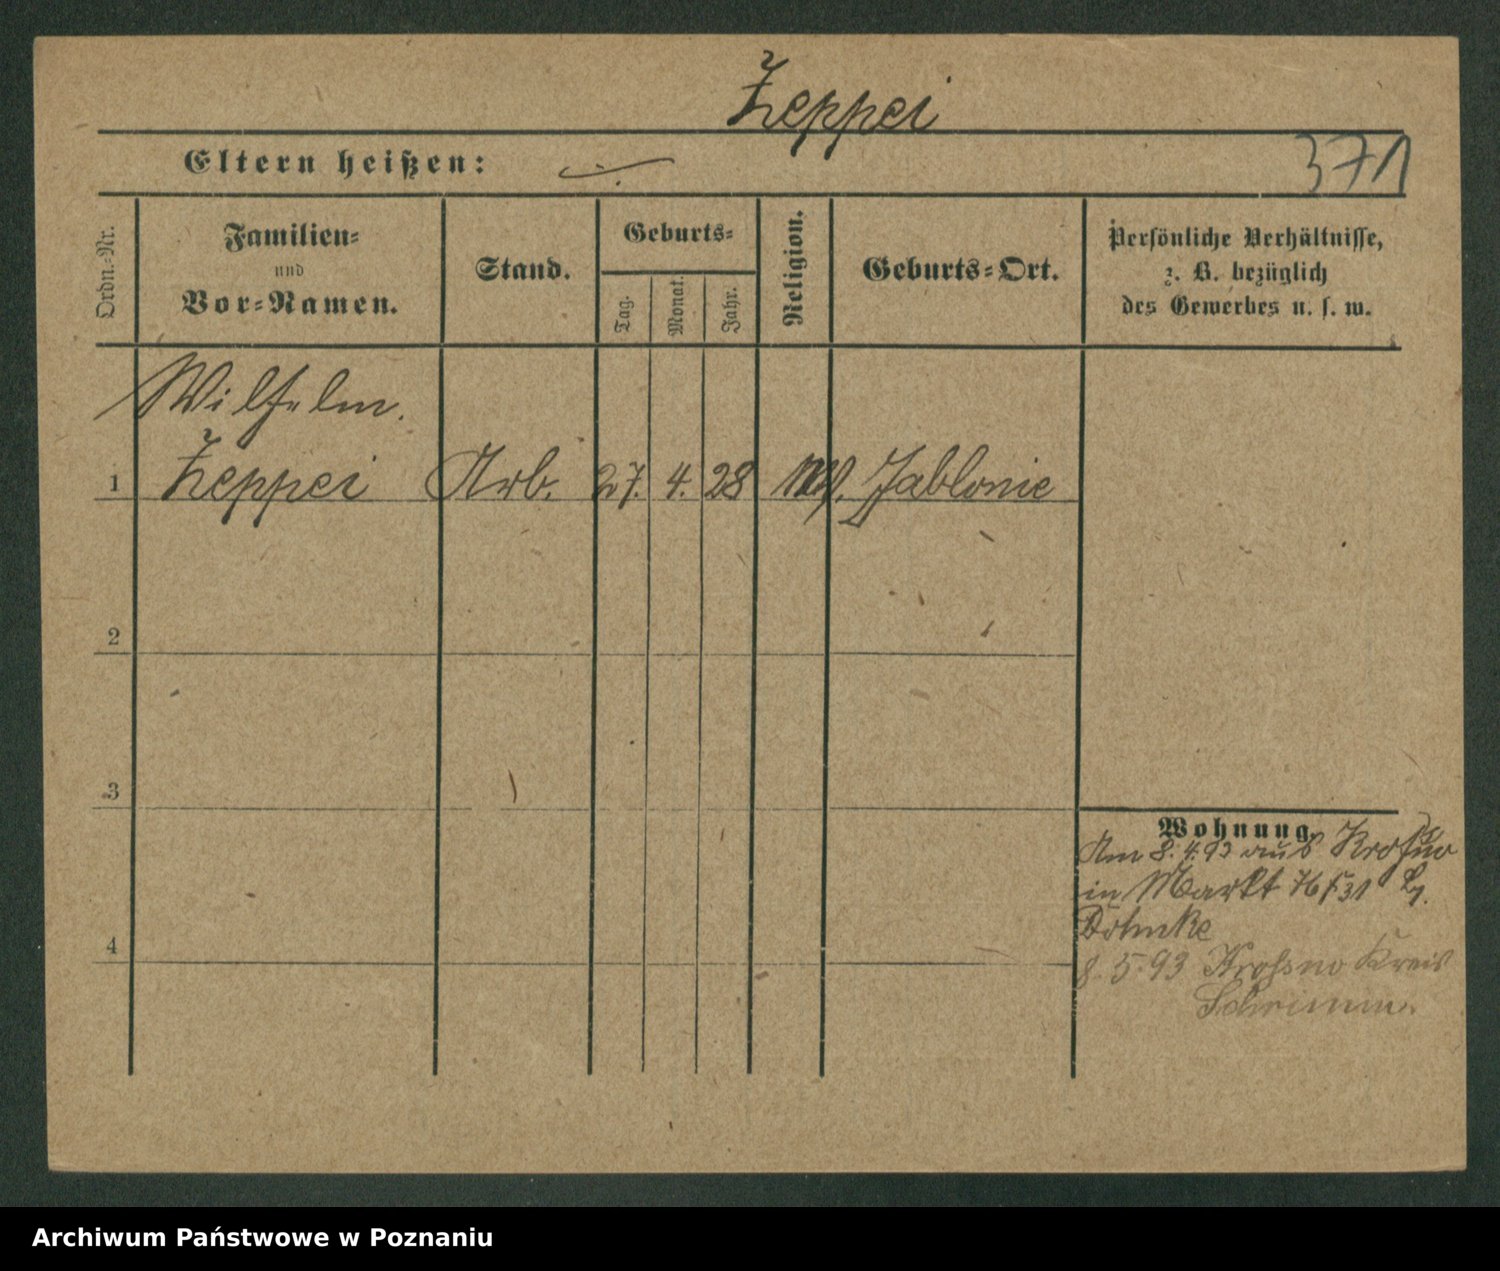 Zeppei
Eltern heißen:
371
Ordn.-Nr.
Familien-
und
Vor-Namen.
Stand.
Geburts-
Tag.
Monat.
Jahr.
Religion.
Geburts-Ort.
Persönliche Verhältnisse,
z. B. bezüglich
des Gewerbes u. s. w.
Wilhelm.
1 Zeppei Arb. 27. 4. 28 Jablonie
2
3
4
Wohnung
Am 8. 4. 93 aus Krosno
in Markt 76
8. 5. 93 Krosno Kreis
Schrimm.
Archiwum Państwowe w Poznaniu